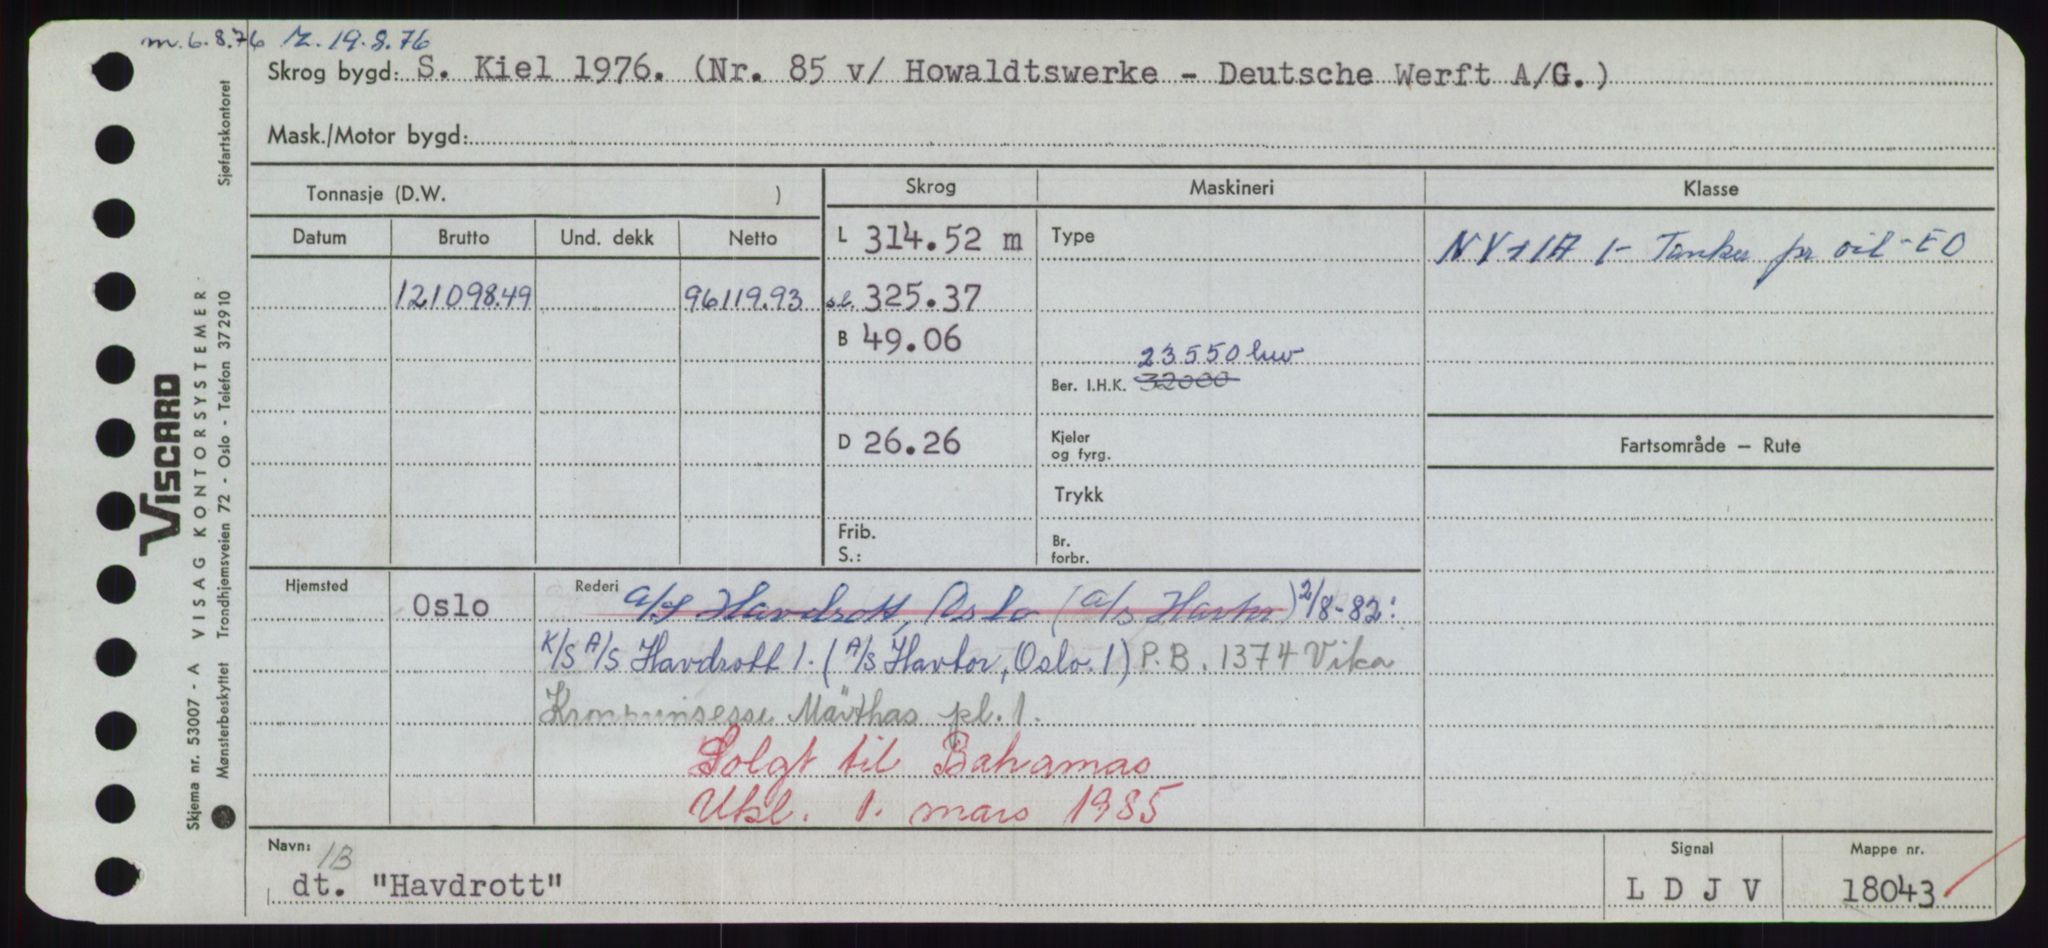 m. 6.8.76 r. 19.8.76
Skrog bygd: S. Kiel 1976. (Nr. 85 v/ Howaldtswerke - Deutsche Werft A/G.)
Mask./Motor bygd:
Tonnasje (D.W. )
Skrog
Maskineri
Klasse
Datum
Brutto
Und. dekk
Netto
L 314.52 m
Type
NV+1A 1- Tanker for oil - EO
121098.49
96119.93
sl. 325.37
B 49.06
23550 hw
Ber. I.H.K. 32000
D 26.26
Kjeler
og fyrg.
Fartsområde — Rute
Trykk
Frib.
S.:
Br.
forbr.
Hjemsted
Oslo
Rederi
a/s Havdrott, Oslo (a/s Havtor) 2/8-82:
K/S A/S Havdrott 1. (A/S Havtor, Oslo. 1) P.B. 1374 Vika
Kronprinsesse Märthas pl. 1.
Solgt til Bahamas
Utsl. 1. mars 1985
Navn:
1B
dt. "Havdrott"
Signal
L D J V
Mappe nr.
18043
Sjøfartskontoret
VISCARD
VISAG KONTORSYSTEMER
Trondhjemsveien 72 - Oslo - Telefon 372910
Skjema nr. 53007 - A
Mønsterbeskyttet